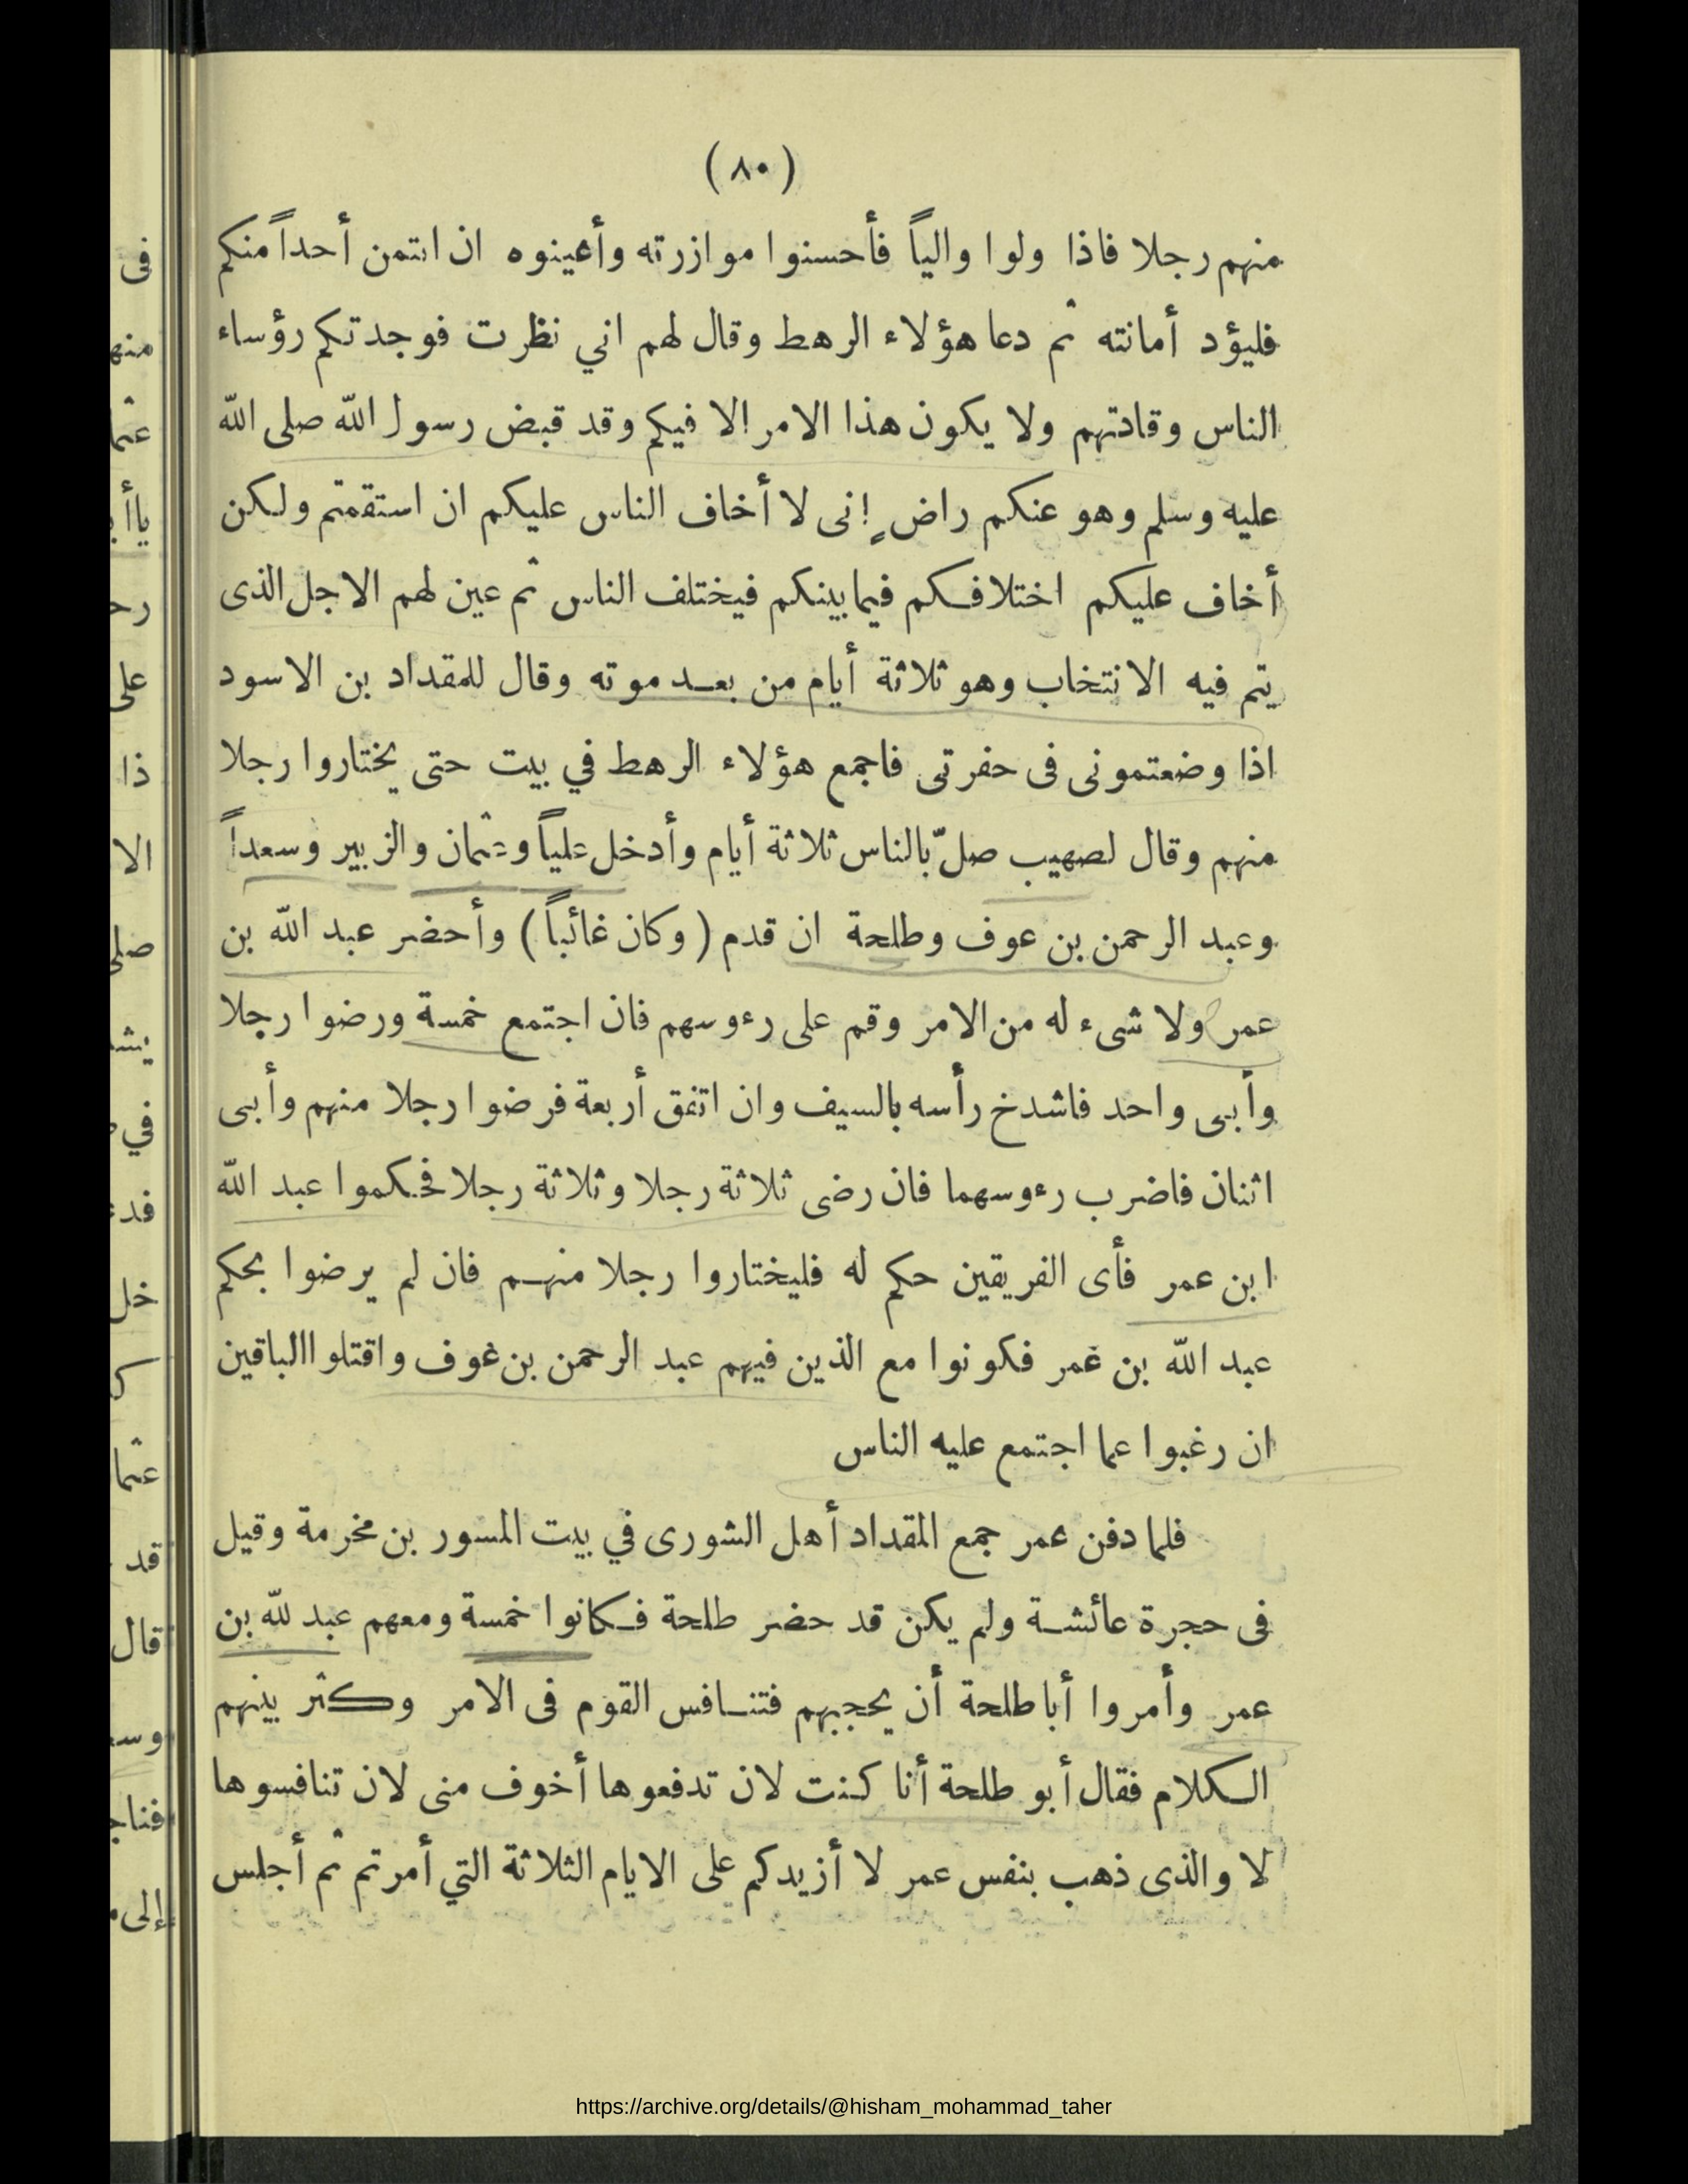 (٨٠)
منهم رجلا فاذا ولوا والياً فأحسنوا موازرته وأعينوه ان ائتمن أحداً منكم
فليؤد أمانته ثم دعا هؤلاء الرهط وقال لهم اني نظرت فوجدتكم رؤساء
الناس وقادتهم ولا يكون هذا الامر الا فيكم وقد قبض رسول الله صلى الله
عليه وسلم وهو عنكم راض إنى لا أخاف الناس عليكم ان استقمتم ولكن
أخاف عليكم اختلافكم فيما بينكم فيختلف الناس ثم عين لهم الاجل الذى
يتم فيه الانتخاب وهو ثلاثة أيام من بعد موته وقال للمقداد بن الاسود
اذا وضعتمونى فى حفرتى فاجمع هؤلاء الرهط في بيت حتى يختاروا رجلا
منهم وقال لصهيب صلّ بالناس ثلاثة أيام وأدخل علياً وعثمان والزبير وسعداً
وعبد الرحمن بن عوف وطلحة ان قدم (وكان غائباً) وأحضر عبد الله بن
عمر ولا شىء له من الامر وقم على رءوسهم فان اجتمع خمسة ورضوا رجلا
وأبى واحد فاشدخ رأسه بالسيف وان اتفق أربعة فرضوا رجلا منهم وأبى
اثنان فاضرب رءوسهما فان رضى ثلاثة رجلا وثلاثة رجلا فحكموا عبد الله
ابن عمر فأى الفريقين حكم له فليختاروا رجلا منهم فان لم يرضوا بحكم
عبد الله بن عمر فكونوا مع الذين فيهم عبد الرحمن بن عوف واقتلوا الباقين
ان رغبوا عما اجتمع عليه الناس
فلما دفن عمر جمع المقداد أهل الشورى في بيت المسور بن مخرمة وقيل
فى حجرة عائشة ولم يكن قد حضر طلحة فكانوا خمسة ومعهم عبد لله بن
عمر وأمروا أبا طلحة أن يحجبهم فتنافس القوم فى الامر وكثر بينهم
الكلام فقال أبو طلحة أنا كنت لان تدفعوها أخوف منى لان تنافسوها
لا والذى ذهب بنفس عمر لا أزيدكم على الايام الثلاثة التي أمرتم ثم أجلس
https://archive.org/details/@hisham_mohammad_taher